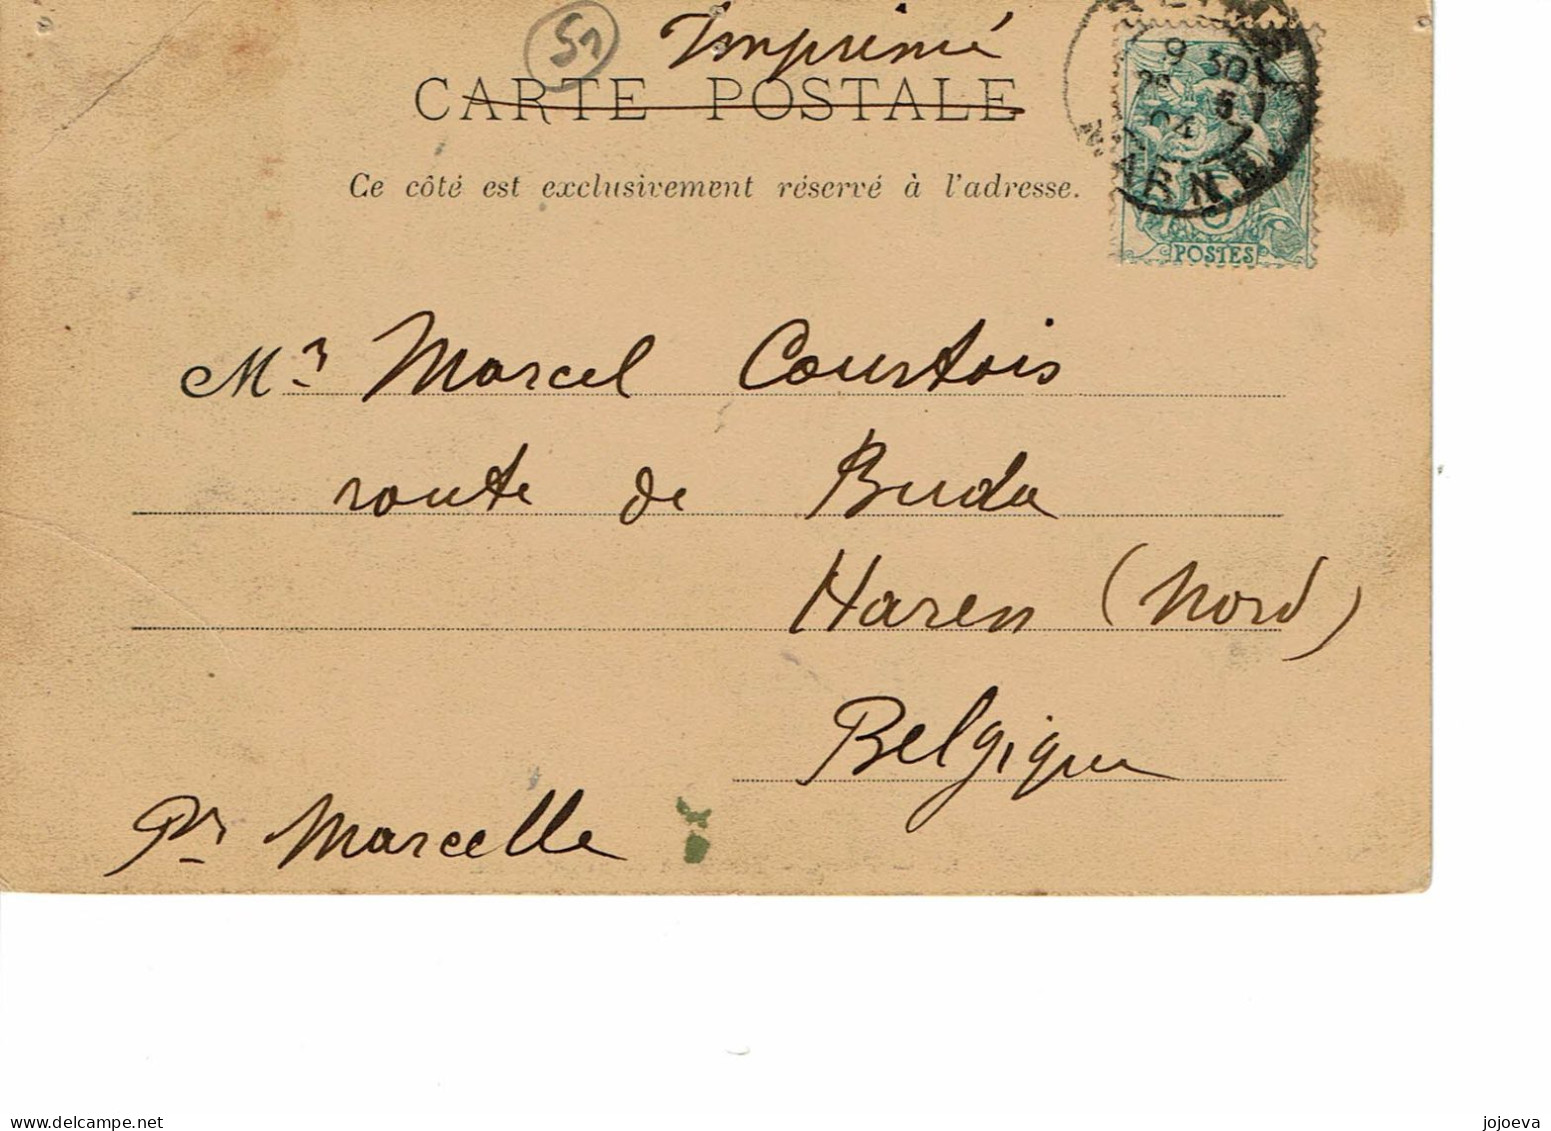 51
Imprimé
CARTE POSTALE
Ce côté est exclusivement réservé à l'adresse.
9 30
5
04
MARNE
5
POSTES
Mr Marcel Courtois
route de Buda
Haren (Nord)
Belgique
Pr Marcelle
jojoeva